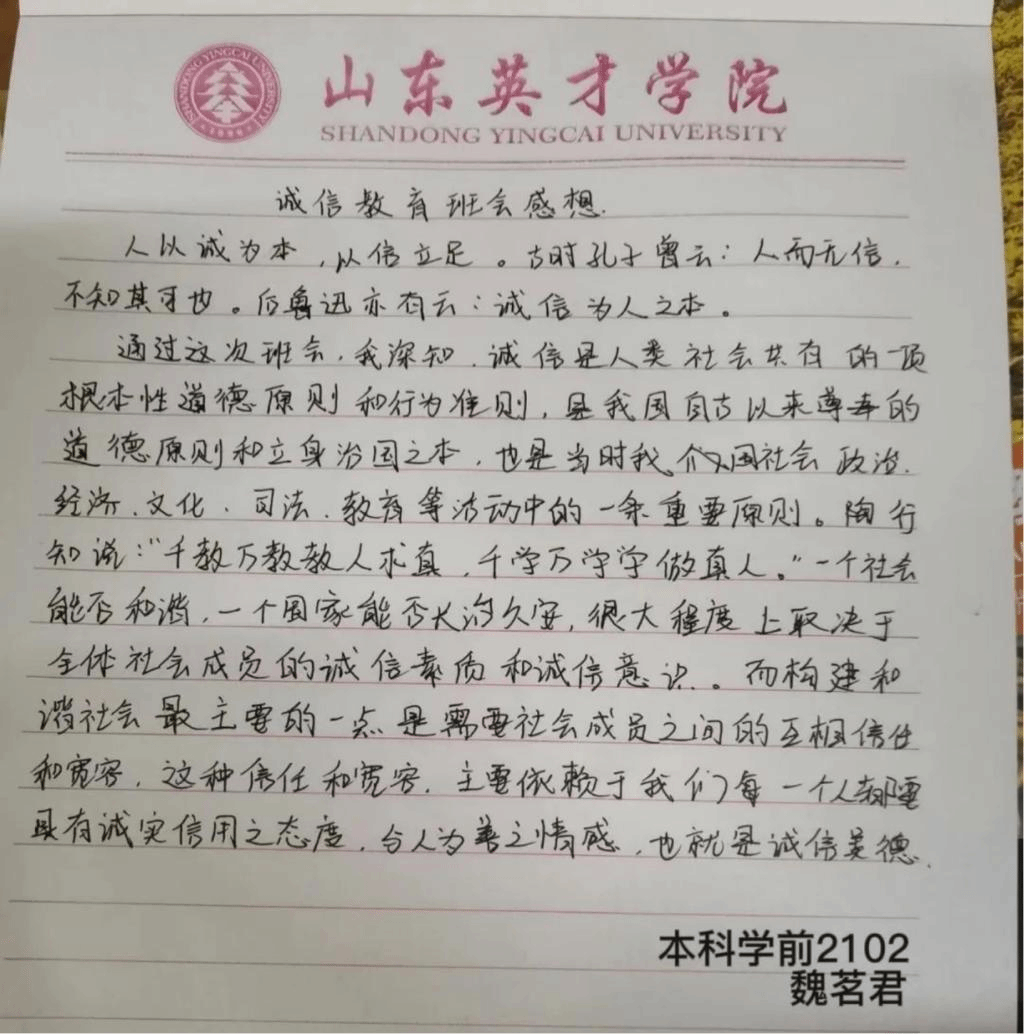 山东英才学院
SHANDONG YINGCAI UNIVERSITY
SHANDONG YINGCAI UNIVERSITY
诚信教育班会感想.
人以诚为本,以信立足。古时孔子曾云:人而无信,
不知其可也。后鲁迅亦有云:诚信为人之本。
通过这次班会,我深知,诚信是人类社会共有的一项
根本性道德原则和行为准则,是我国自古以来尊奉的
道德原则和立身治国之本,也是当时我国社会政治、
经济、文化、司法、教育等活动中的一条重要原则。陶行
知说:"千教万教教人求真,千学万学学做真人。"一个社会
能否和谐,一个国家能否长治久安,很大程度上取决于
全体社会成员的诚信素质和诚信意识。而构建和
谐社会最主要的一点是需要社会成员之间的互相信任
和宽容,这种信任和宽容,主要依赖于我们每一个人都要
具有诚实信用之态度,与人为善之情感,也就是诚信美德.
本科学前2102
魏茗君